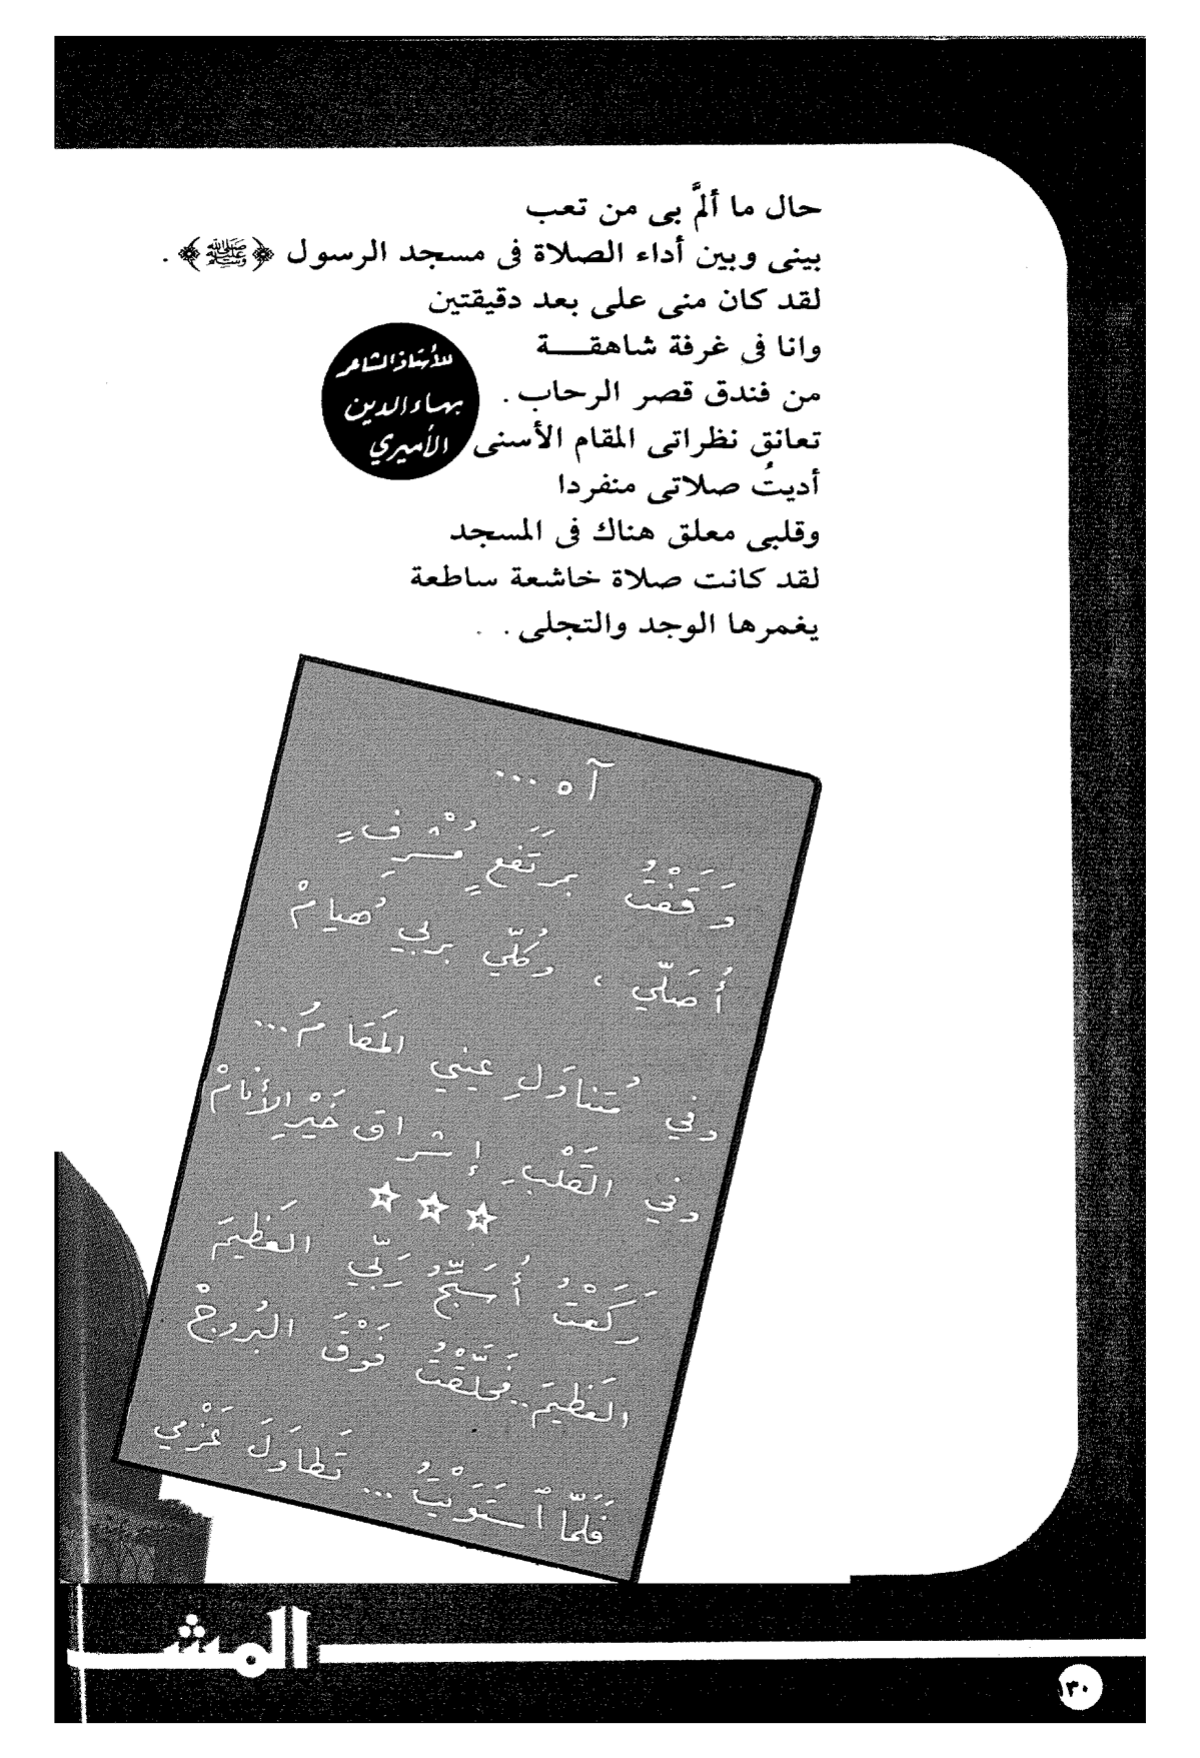 حال ما ألمَّ بى من تعب
بينى وبين أداء الصلاة فى مسجد الرسول ﴿ﷺ﴾ .
لقد كان منى على بعد دقيقتين
وانا فى غرفة شاهقـــة
من فندق قصر الرحاب .
تعانق نظراتى المقام الأسنى
أديتُ صلاتى منفردا
وقلبى معلق هناك فى المسجد
لقد كانت صلاة خاشعة ساطعة
يغمرها الوجد والتجلى . .
للأستاذ الشاعر
بهاء الدين
الأميري
آه ...
وَقَفْتُ بمرتَفعٍ مُشْرفٍ
أُصَلّي ، وكُلّي بربي هُيامْ
وفي مُتناوَلِ عيني المَقامُ...
وفي القَلْبِ إشراق خَيْرِ الأنامْ
رَكَعْتُ أُسَبّحُ رَبّي العَظيمَ
العَظيمَ..فحلّقْتُ فَوْقَ البُروجْ
فَلَمّا ٱستَوَيْتُ ... تَطاوَلَ عَزْمي
المشـ
١٣٠